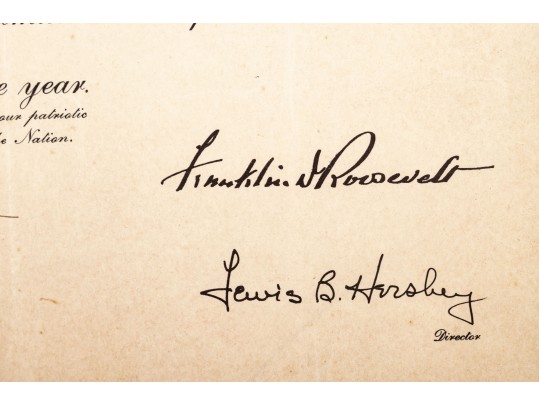 e year.
our patriotic
Nation.
Franklin D Roosevelt
Lewis B. Hershey
Director